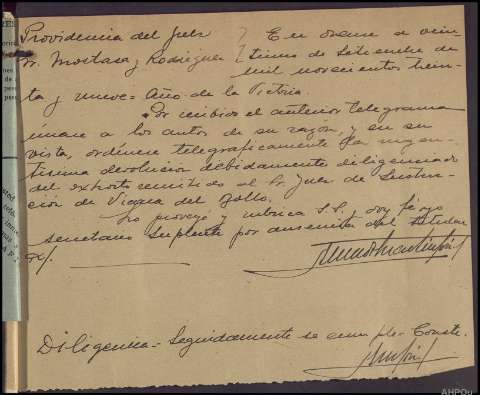 Providencia del Juez } En Orense a vein
Sr. Mostaza y Rodriguez } tiuno de Setiembre de
mil novecientos trein-
ta y nueve= Año de la Victoria.
Por recibido el anterior telegrama
únase a los autos de su razón, y en su
vista, ordénese telegraficamente la
devolución debidamente diligenciado
del exhorto remitido al Sr. Juez de Instruc-
ción de Viana del Bollo.
Lo proveyó y rubrica S.S. doy fé yo
secretario suplente por ausencia del titular
Diligencia= Seguidamente se cumple. Conste.
AHPOu